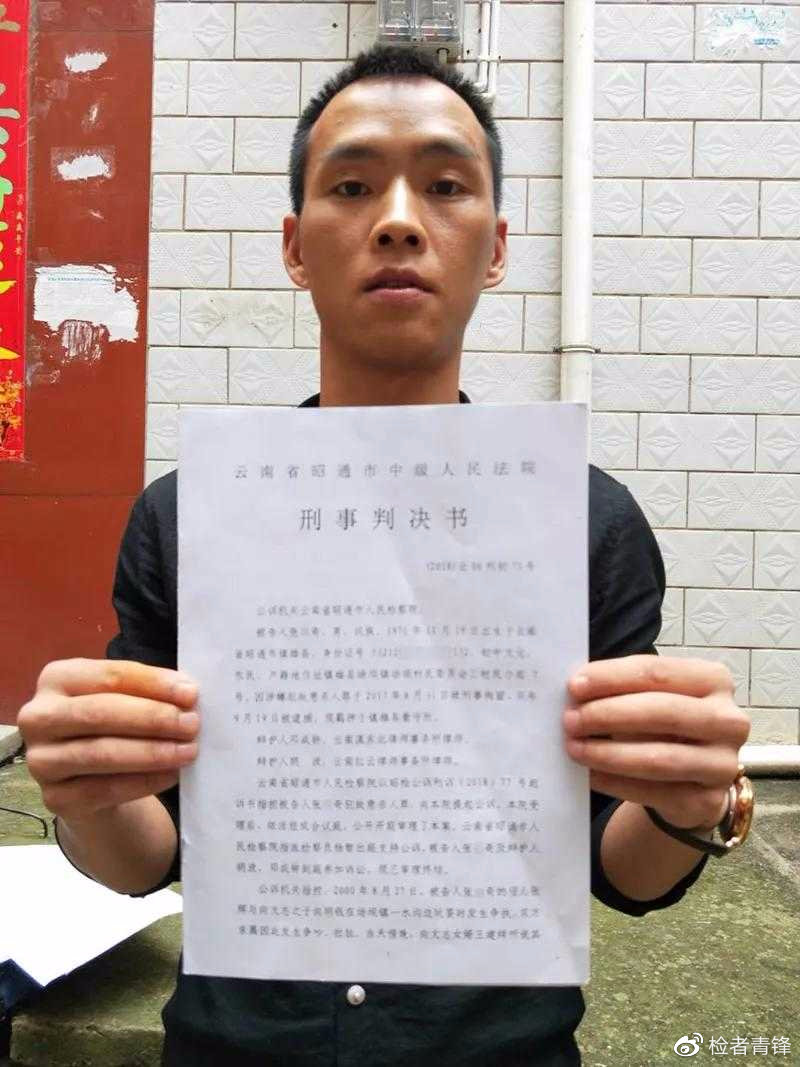 云南省昭通市中级人民法院
刑事判决书
(2018)云06刑初75号
公诉机关云南省昭通市人民检察院。
被告人张 奇，男，汉族，1971年11月19日出生于云南
省昭通市镇雄县，身份证号 初中文化，
农民，户籍地住址镇雄县
号。因涉嫌犯故意杀人罪于2017年8月31日被刑事拘留，同年
9月19日被逮捕。现羁押于镇雄县看守所。
辩护人邓成钟，云南滇东北律师事务所律师。
辩护人明波，云南红云律师事务所律师。
云南省昭通市人民检察院以昭检公诉刑诉〔2018〕77号起
诉书指控被告人张 奇犯故意杀人罪，向本院提起公诉。本院受
理后，依法组成合议庭，公开开庭审理了本案。云南省昭通市人
民检察院指派检察员 出庭支持公诉，被告人张 奇及辩护人
明波、邓成钟到庭参加诉讼。现已审理终结。
公诉机关指控，2000年8月27日，被告人张 奇的侄儿张
辉与向文志之子向明钱在 镇一水沟边玩耍时发生争执，双方
亲属因此发生争吵、拉扯。当天傍晚，向文志女婿王建 听说其
1
检者青锋